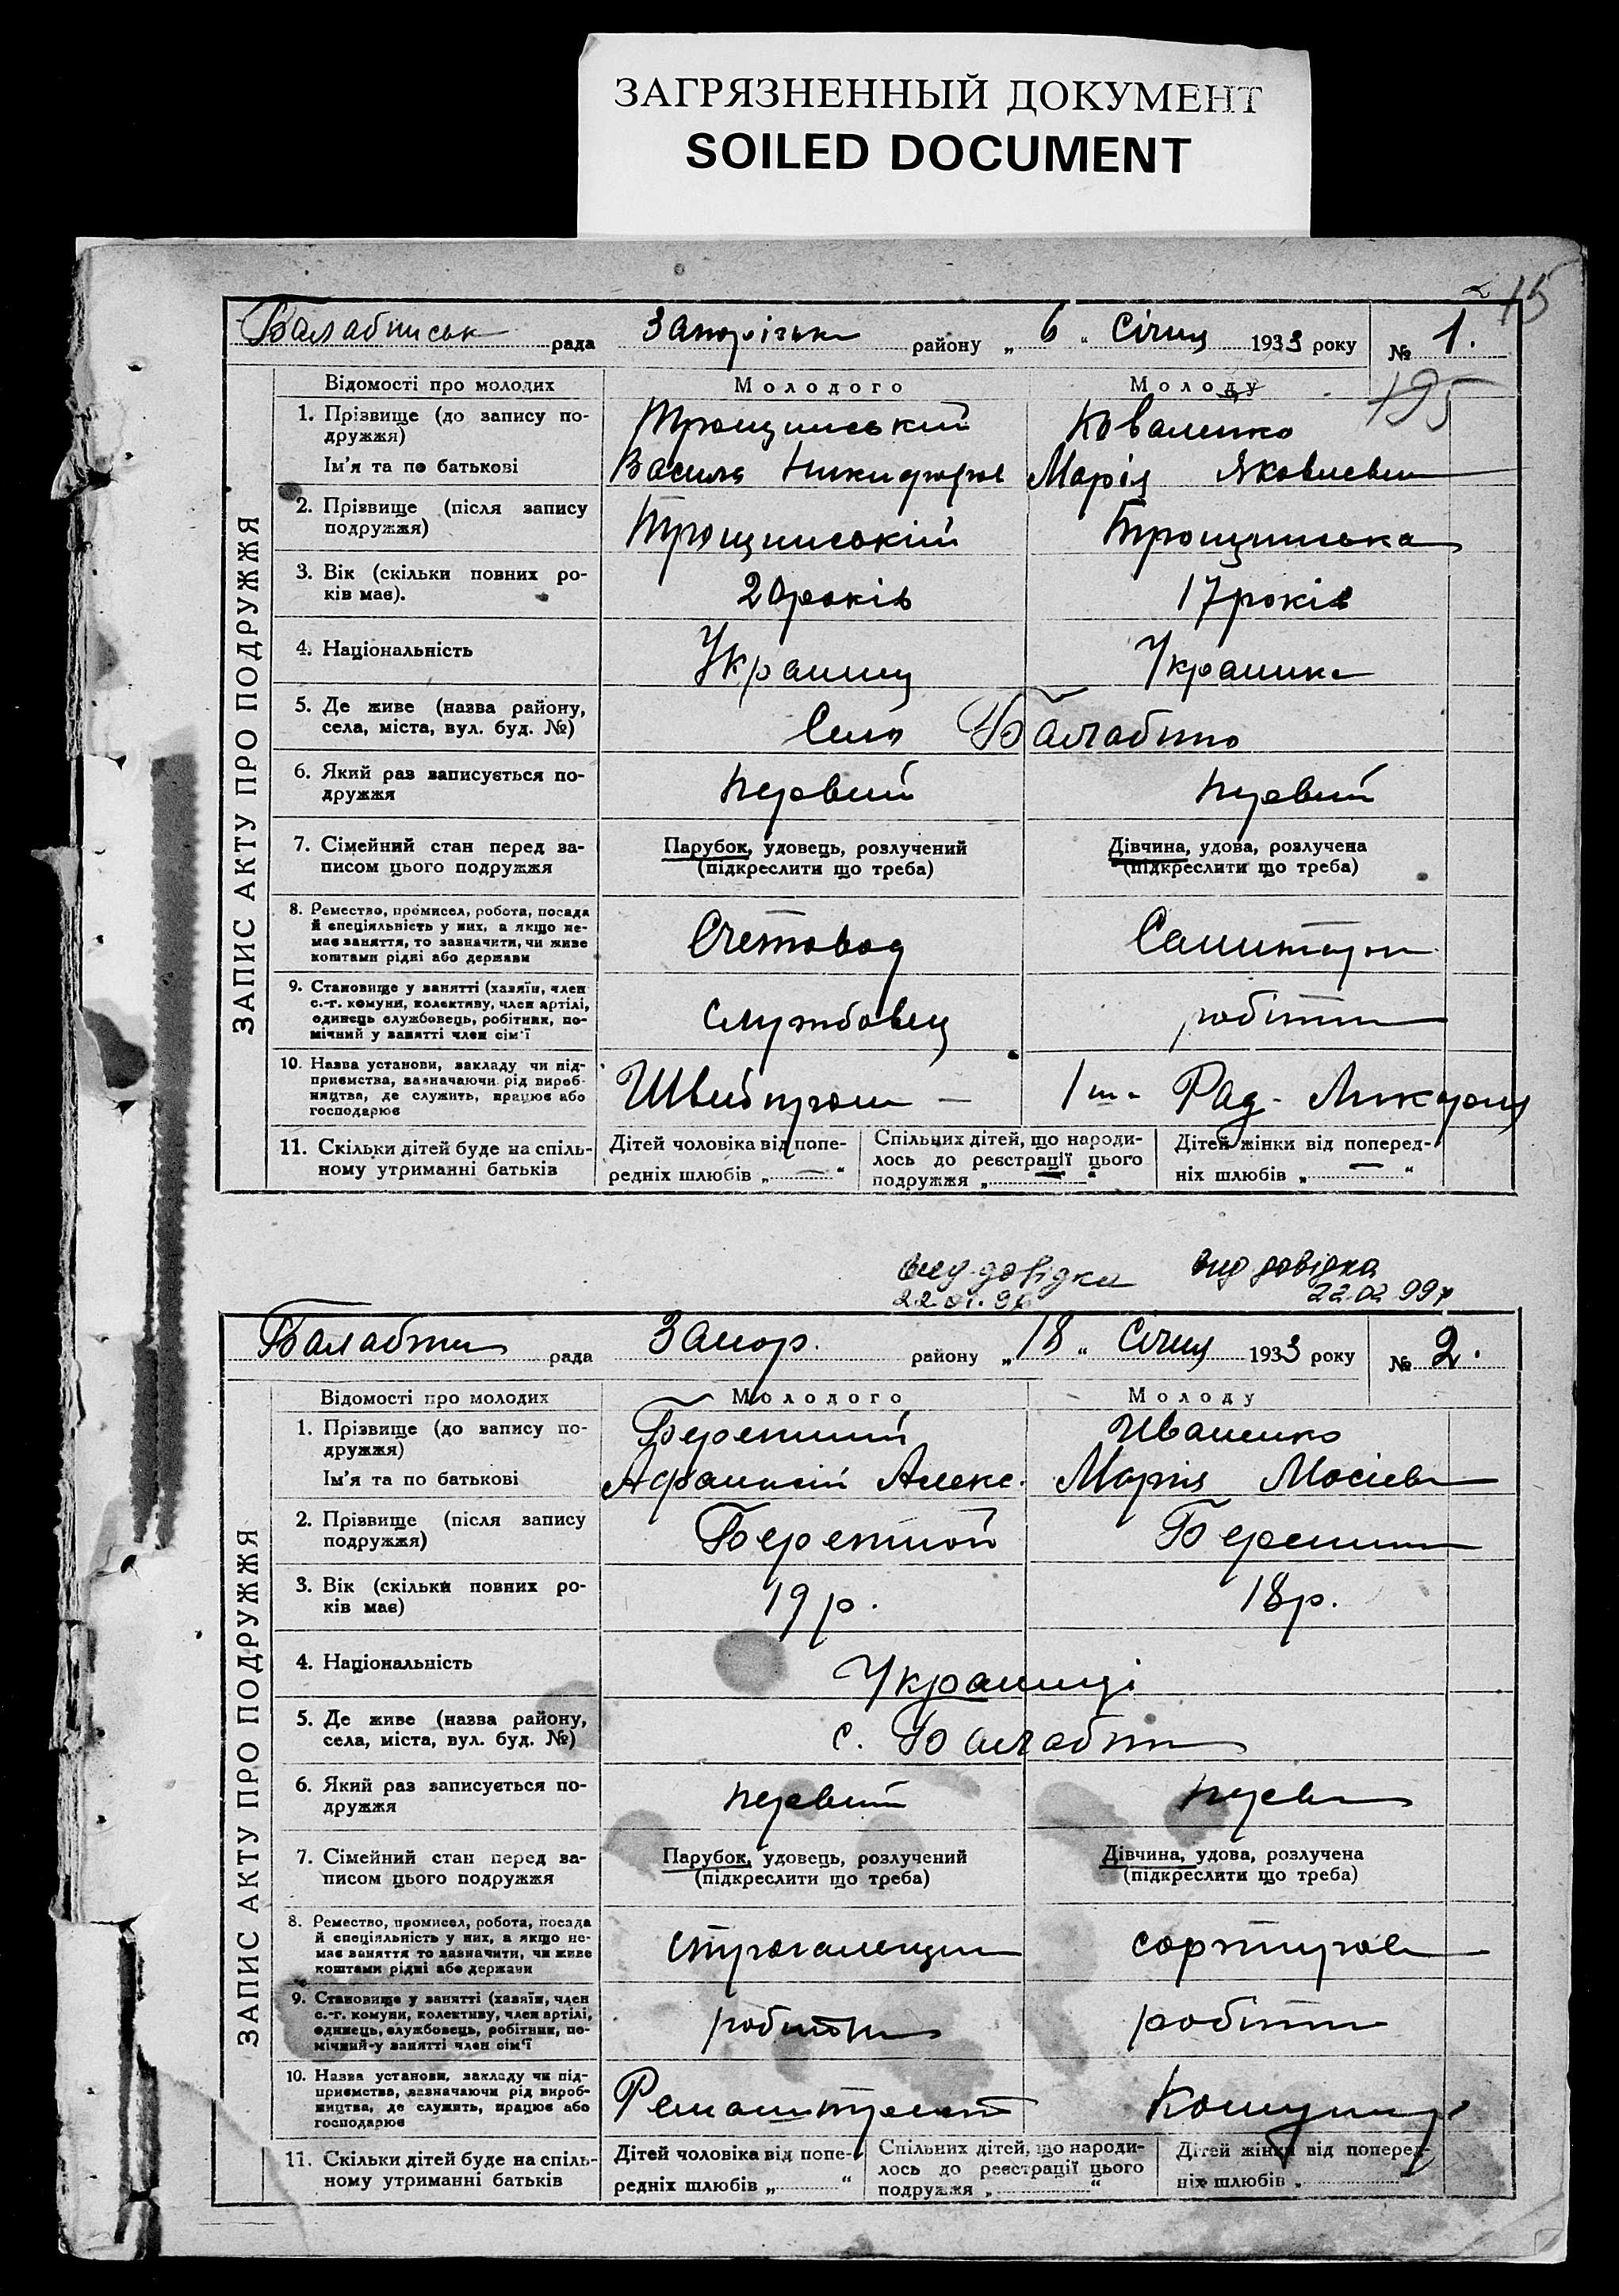 ЗАГРЯЗНЕННЫЙ ДОКУМЕНТ
SOILED DOCUMENT
15
Балабинськ рада Запорізьк району „ 6 “ Січня 1933 року № 1.
195
Відомості про молодих Молодого Молоду
ЗАПИС АКТУ ПРО ПОДРУЖЖЯ
1. Прізвище (до запису по-
дружжя)
Трощинський Коваленко
Ім'я та по батькові Василь Никифоров Марія Яковлевн
2. Прізвище (після запису
подружжя)
Трощинській Трощинська
3. Вік (скільки повних ро-
ків має).
20років 17років
4. Національність Украинец Украинка
5. Де живе (назва району,
села, міста, вул. буд. №)
Село Балабино
6. Який раз записується по-
дружжя
первий первий
7. Сімейний стан перед за-
писом цього подружжя
Парубок, удовець, розлучений
(підкреслити що треба)
Дівчина, удова, розлучена
(підкреслити що треба)
8. Ремество, промисел, робота, посада
й спеціяльність у них, а якщо не-
має заняття, то зазначити, чи живе
коштами рідні або держави
Счетовод Санитарк
9. Становище у занятті (хазяїн, член
с.-г. комуни, колективу, член артілі,
одинець службовець, робітник, по-
мічний у занятті член сім'ї
Службовец робітн
10. Назва установи, закладу чи під-
приємства, зазначаючи рід вироб-
ництва, де служить, працює або
господарює
Швейпром — 1ш. Рад.
11. Скільки дітей буде на спіль-
ному утриманні батьків
Дітей чоловіка від попе-
редніх шлюбів „ — “
Спільних дітей, що народи-
лось до реєстрації цього
подружжя „ — “
Дітей жінки від поперед-
ніх шлюбів „ — “
вид довідка
22.01.96
вид довідка
22.02 99р
Балабин рада Запор. району „ 18 “ Січня 1933 року № 2.
Відомості про молодих Молодого Молоду
ЗАПИС АКТУ ПРО ПОДРУЖЖЯ
1. Прізвище (до запису по-
дружжя)
Бережний Иваненко
Ім'я та по батькові Афанасій Алекс. Мария Мосіев
2. Прізвище (після запису
подружжя)
Бережной Бережн
3. Вік (скільки повних ро-
ків має)
19р. 18р.
4. Національність Украинці
5. Де живе (назва району,
села, міста, вул. буд. №)
с. Балабин
6. Який раз записується по-
дружжя
первий перв
7. Сімейний стан перед за-
писом цього подружжя
Парубок, удовець, розлучений
(підкреслити що треба)
Дівчина, удова, розлучена
(підкреслити що треба)
8. Ремество, промисел, робота, посада
й спеціяльність у них, а якщо не-
має заняття то зазначити, чи живе
коштами рідні або держави
строгальщик сортиров
9. Становище у занятті (хазяїн, член
с.-г. комуни, колективу, член артілі,
одинець, службовець, робітник, по-
мічний у занятті член сім'ї
робитн робітн
10. Назва установи, закладу чи під-
приємства, зазначаючи рід вироб-
ництва, де служить, працює або
господарює
11. Скільки дітей буде на спіль-
ному утриманні батьків
Дітей чоловіка від попе-
редніх шлюбів „ “
Спільних дітей, що народи-
лось до реєстрації цього
подружжя „ “
Дітей жінки від поперед-
ніх шлюбів „ “